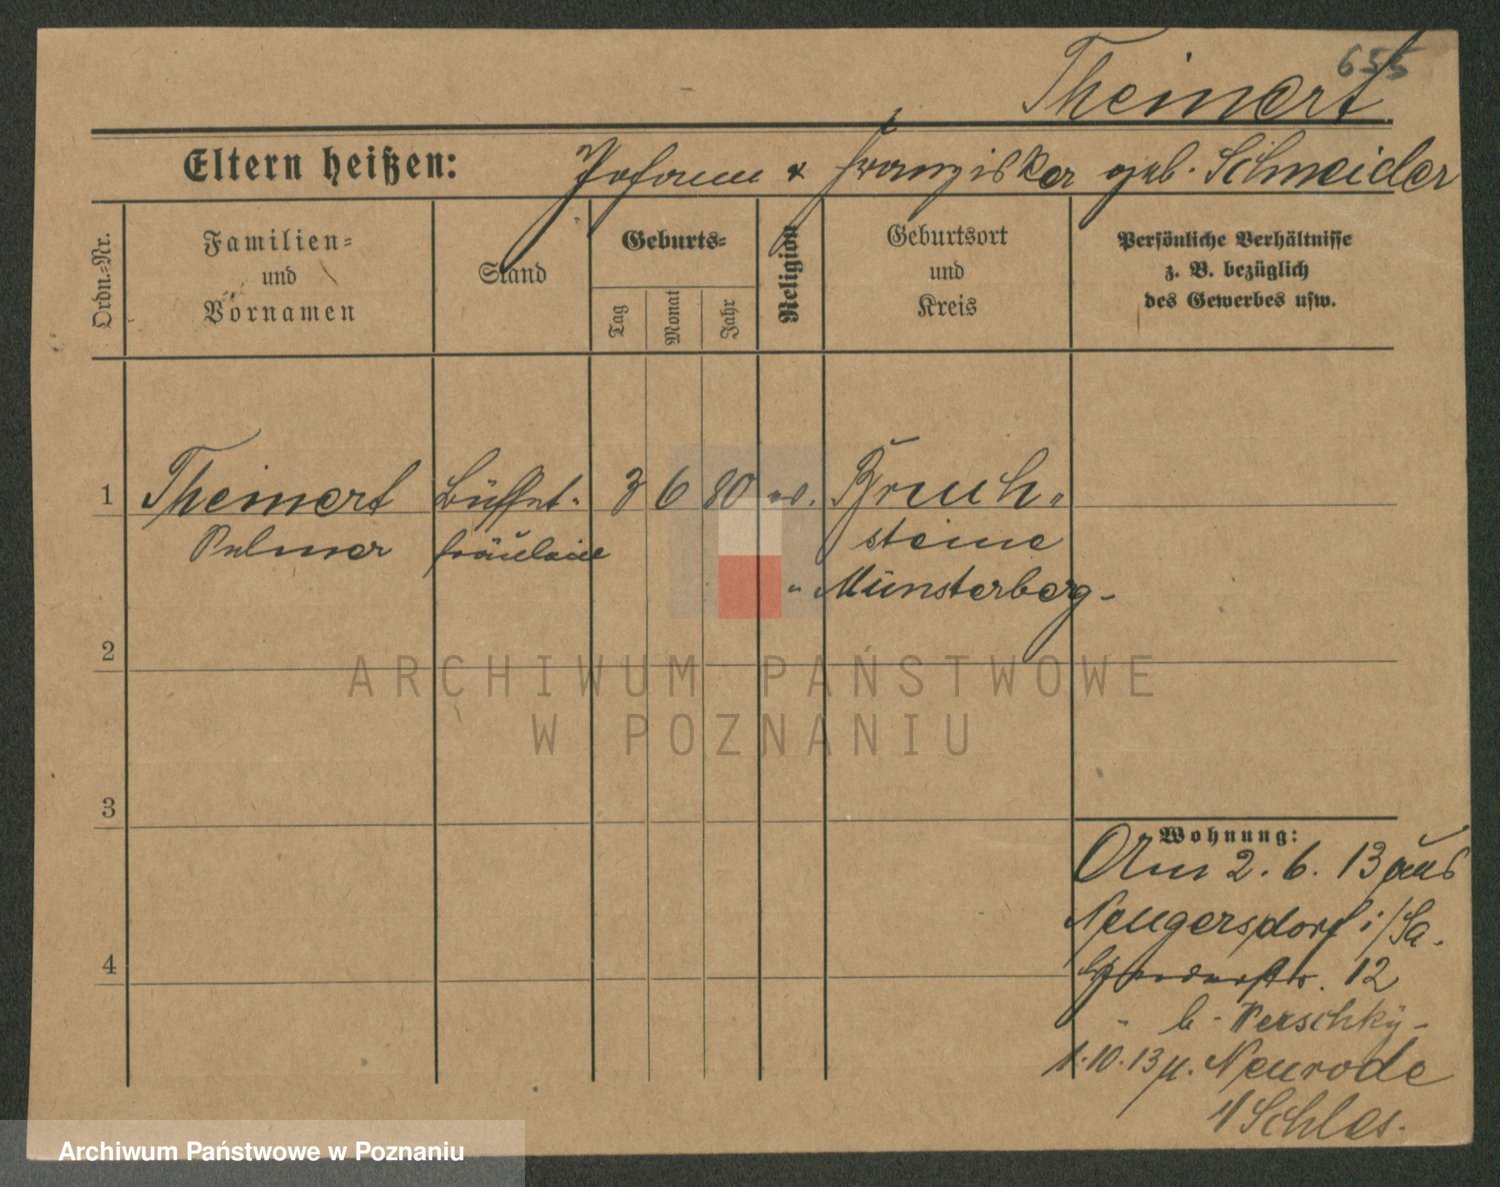 655
Theinert
Eltern heißen: Johann & Franziska geb. Schneider
Ordn.-Nr.
Familien-
und
Vornamen
Stand
Geburts-
Tag
Monat
Jahr
Religion
Geburtsort
und
Kreis
Persönliche Verhältnisse
z. B. bezüglich
des Gewerbes usw.
1 Theinert Büffet- 3 6 80 Bruch-
fräulein steine
"Münsterberg-
2
3
4
Wohnung:
Am 2. 6. 13 aus
Neugersdorf i/Sa.
12
b.
1.10.13 n. Neurode
i/Schles.
ARCHIWUM PAŃSTWOWE
W POZNANIU
Archiwum Państwowe w Poznaniu